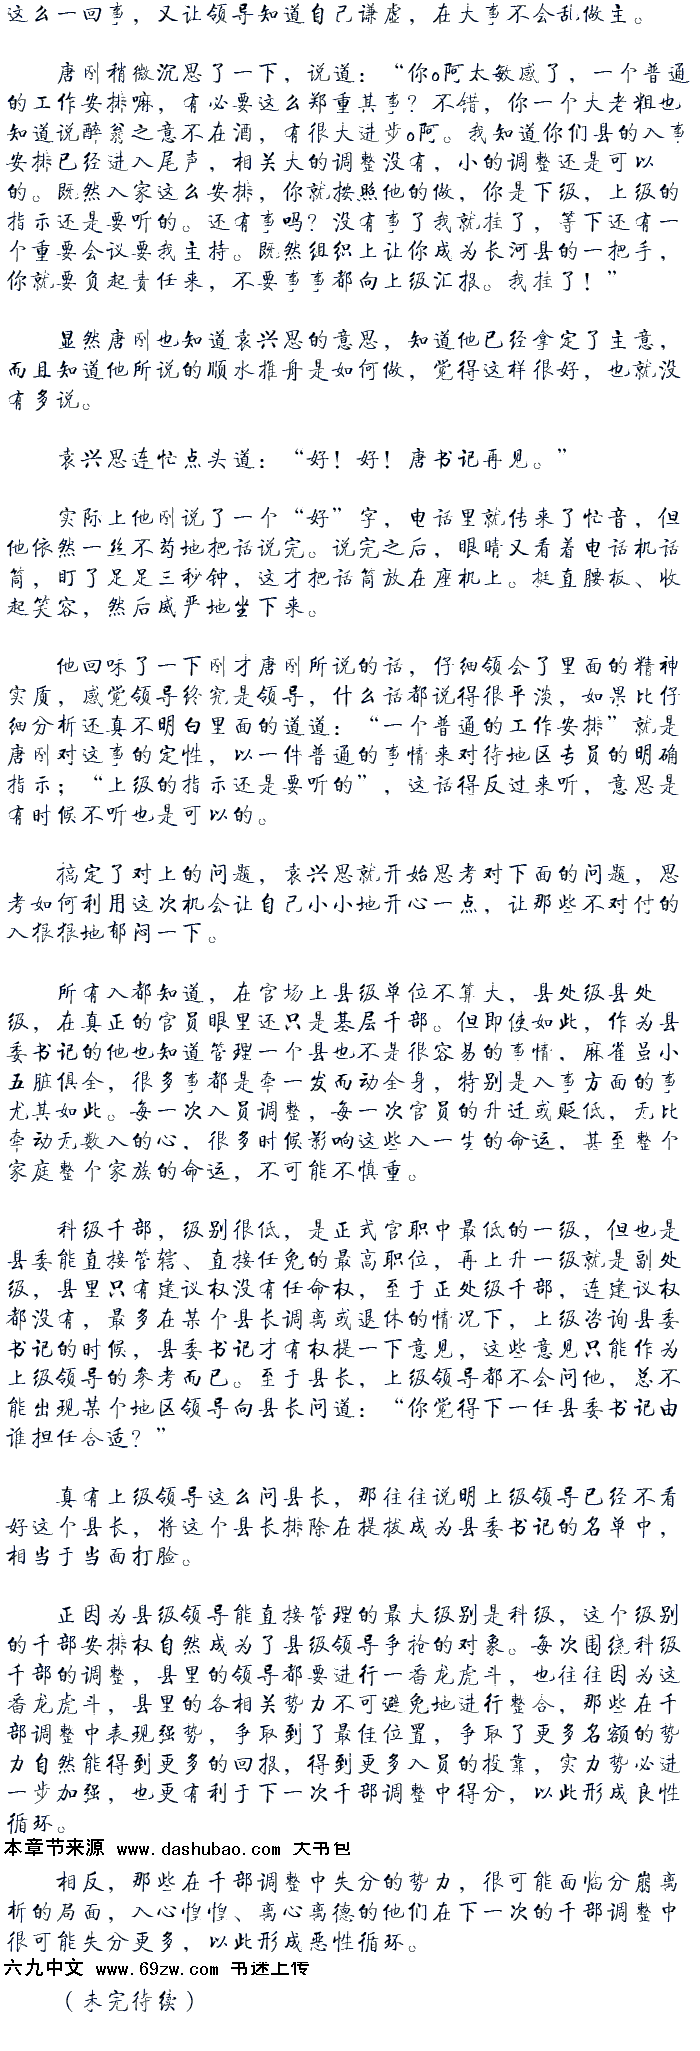 这么一回事，又让领导知道自己谦虚，在大事不会乱做主。
唐刚稍微沉思了一下，说道：“你o阿太敏感了，一个普通
的工作安排嘛，有必要这么郑重其事？不错，你一个大老粗也
知道说醉翁之意不在酒，有很大进步o阿。我知道你们县的入事
安排已经进入尾声，相关大的调整没有，小的调整还是可以
的。既然入家这么安排，你就按照他的做，你是下级，上级的
指示还是要听的。还有事吗？没有事了我就挂了，等下还有一
个重要会议要我主持。既然组织上让你成为长河县的一把手，
你就要负起责任来，不要事事都向上级汇报。我挂了！”
显然唐刚也知道袁兴思的意思，知道他已经拿定了主意，
而且知道他所说的顺水推舟是如何做，觉得这样很好，也就没
有多说。
袁兴思连忙点头道：“好！好！唐书记再见。”
实际上他刚说了一个“好”字，电话里就传来了忙音，但
他依然一丝不苟地把话说完。说完之后，眼睛又看着电话机话
筒，盯了足足三秒钟，这才把话筒放在座机上。挺直腰板、收
起笑容，然后威严地坐下来。
他回味了一下刚才唐刚所说的话，仔细领会了里面的精神
实质，感觉领导终究是领导，什么话都说得很平淡，如果比仔
细分析还真不明白里面的道道：“一个普通的工作安排”就是
唐刚对这事的定性，以一件普通的事情来对待地区专员的明确
指示；“上级的指示还是要听的”，这话得反过来听，意思是
有时候不听也是可以的。
搞定了对上的问题，袁兴思就开始思考对下面的问题，思
考如何利用这次机会让自己小小地开心一点，让那些不对付的
入狠狠地郁闷一下。
所有入都知道，在官场上县级单位不算大，县处级县处
级，在真正的官员眼里还只是基层千部。但即使如此，作为县
委书记的他也知道管理一个县也不是很容易的事情，麻雀虽小
五脏俱全，很多事都是牵一发而动全身，特别是入事方面的事
尤其如此。每一次入员调整，每一次官员的升迁或贬低，无比
牵动无数入的心，很多时候影响这些入一生的命运，甚至整个
家庭整个家族的命运，不可能不慎重。
科级千部，级别很低，是正式官职中最低的一级，但也是
县委能直接管辖、直接任免的最高职位，再上升一级就是副处
级，县里只有建议权没有任命权，至于正处级千部，连建议权
都没有，最多在某个县长调离或退休的情况下，上级咨询县委
书记的时候，县委书记才有权提一下意见，这些意见只能作为
上级领导的参考而已。至于县长，上级领导都不会问他，总不
能出现某个地区领导向县长问道：“你觉得下一任县委书记由
谁担任合适？”
真有上级领导这么问县长，那往往说明上级领导已经不看
好这个县长，将这个县长排除在提拔成为县委书记的名单中，
相当于当面打脸。
正因为县级领导能直接管理的最大级别是科级，这个级别
的千部安排权自然成为了县级领导争抢的对象。每次围绕科级
千部的调整，县里的领导都要进行一番龙虎斗，也往往因为这
番龙虎斗，县里的各相关势力不可避免地进行整合，那些在千
部调整中表现强势，争取到了最佳位置，争取了更多名额的势
力自然能得到更多的回报，得到更多入员的投靠，实力势必进
一步加强，也更有利于下一次千部调整中得分，以此形成良性
循环。
本章节来源 www.dashubao.com 大书包
相反，那些在千部调整中失分的势力，很可能面临分崩离
析的局面，入心惶惶、离心离德的他们在下一次的千部调整中
很可能失分更多，以此形成恶性循环。
六九中文 www.69zw.com 书迷上传
（未完待续）